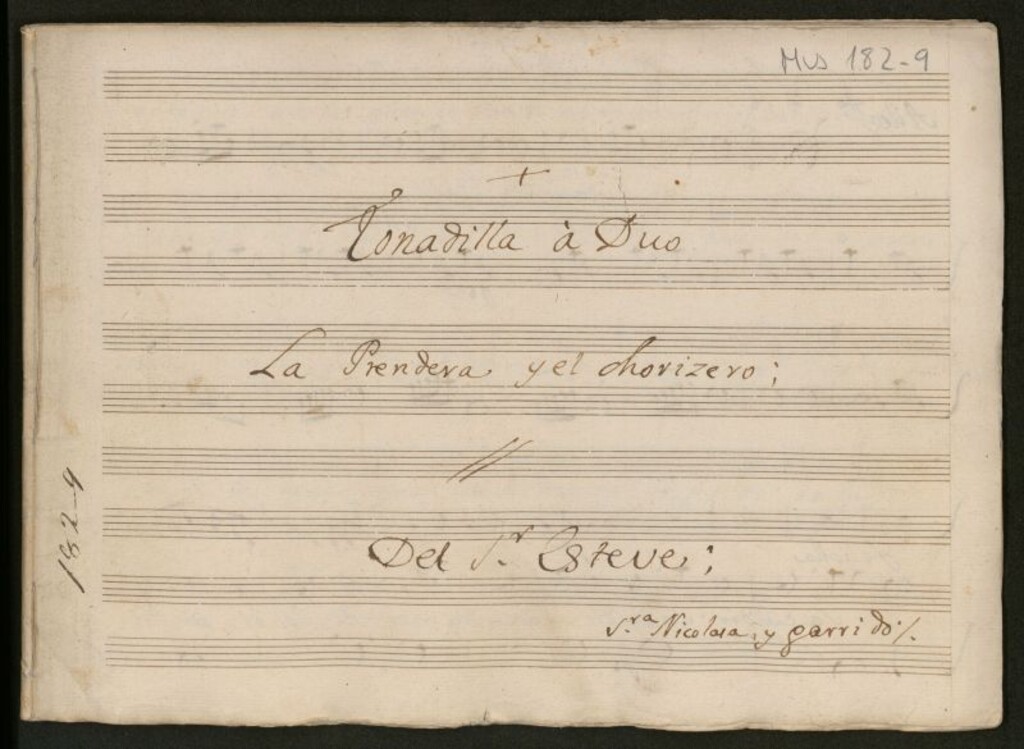 Mus 182-9
+
Tonadilla à Duo
La Prendera y el chorizero;
//
Del S.r Esteve;
S.ra Nicolasa, y garrido ·/.
182-9